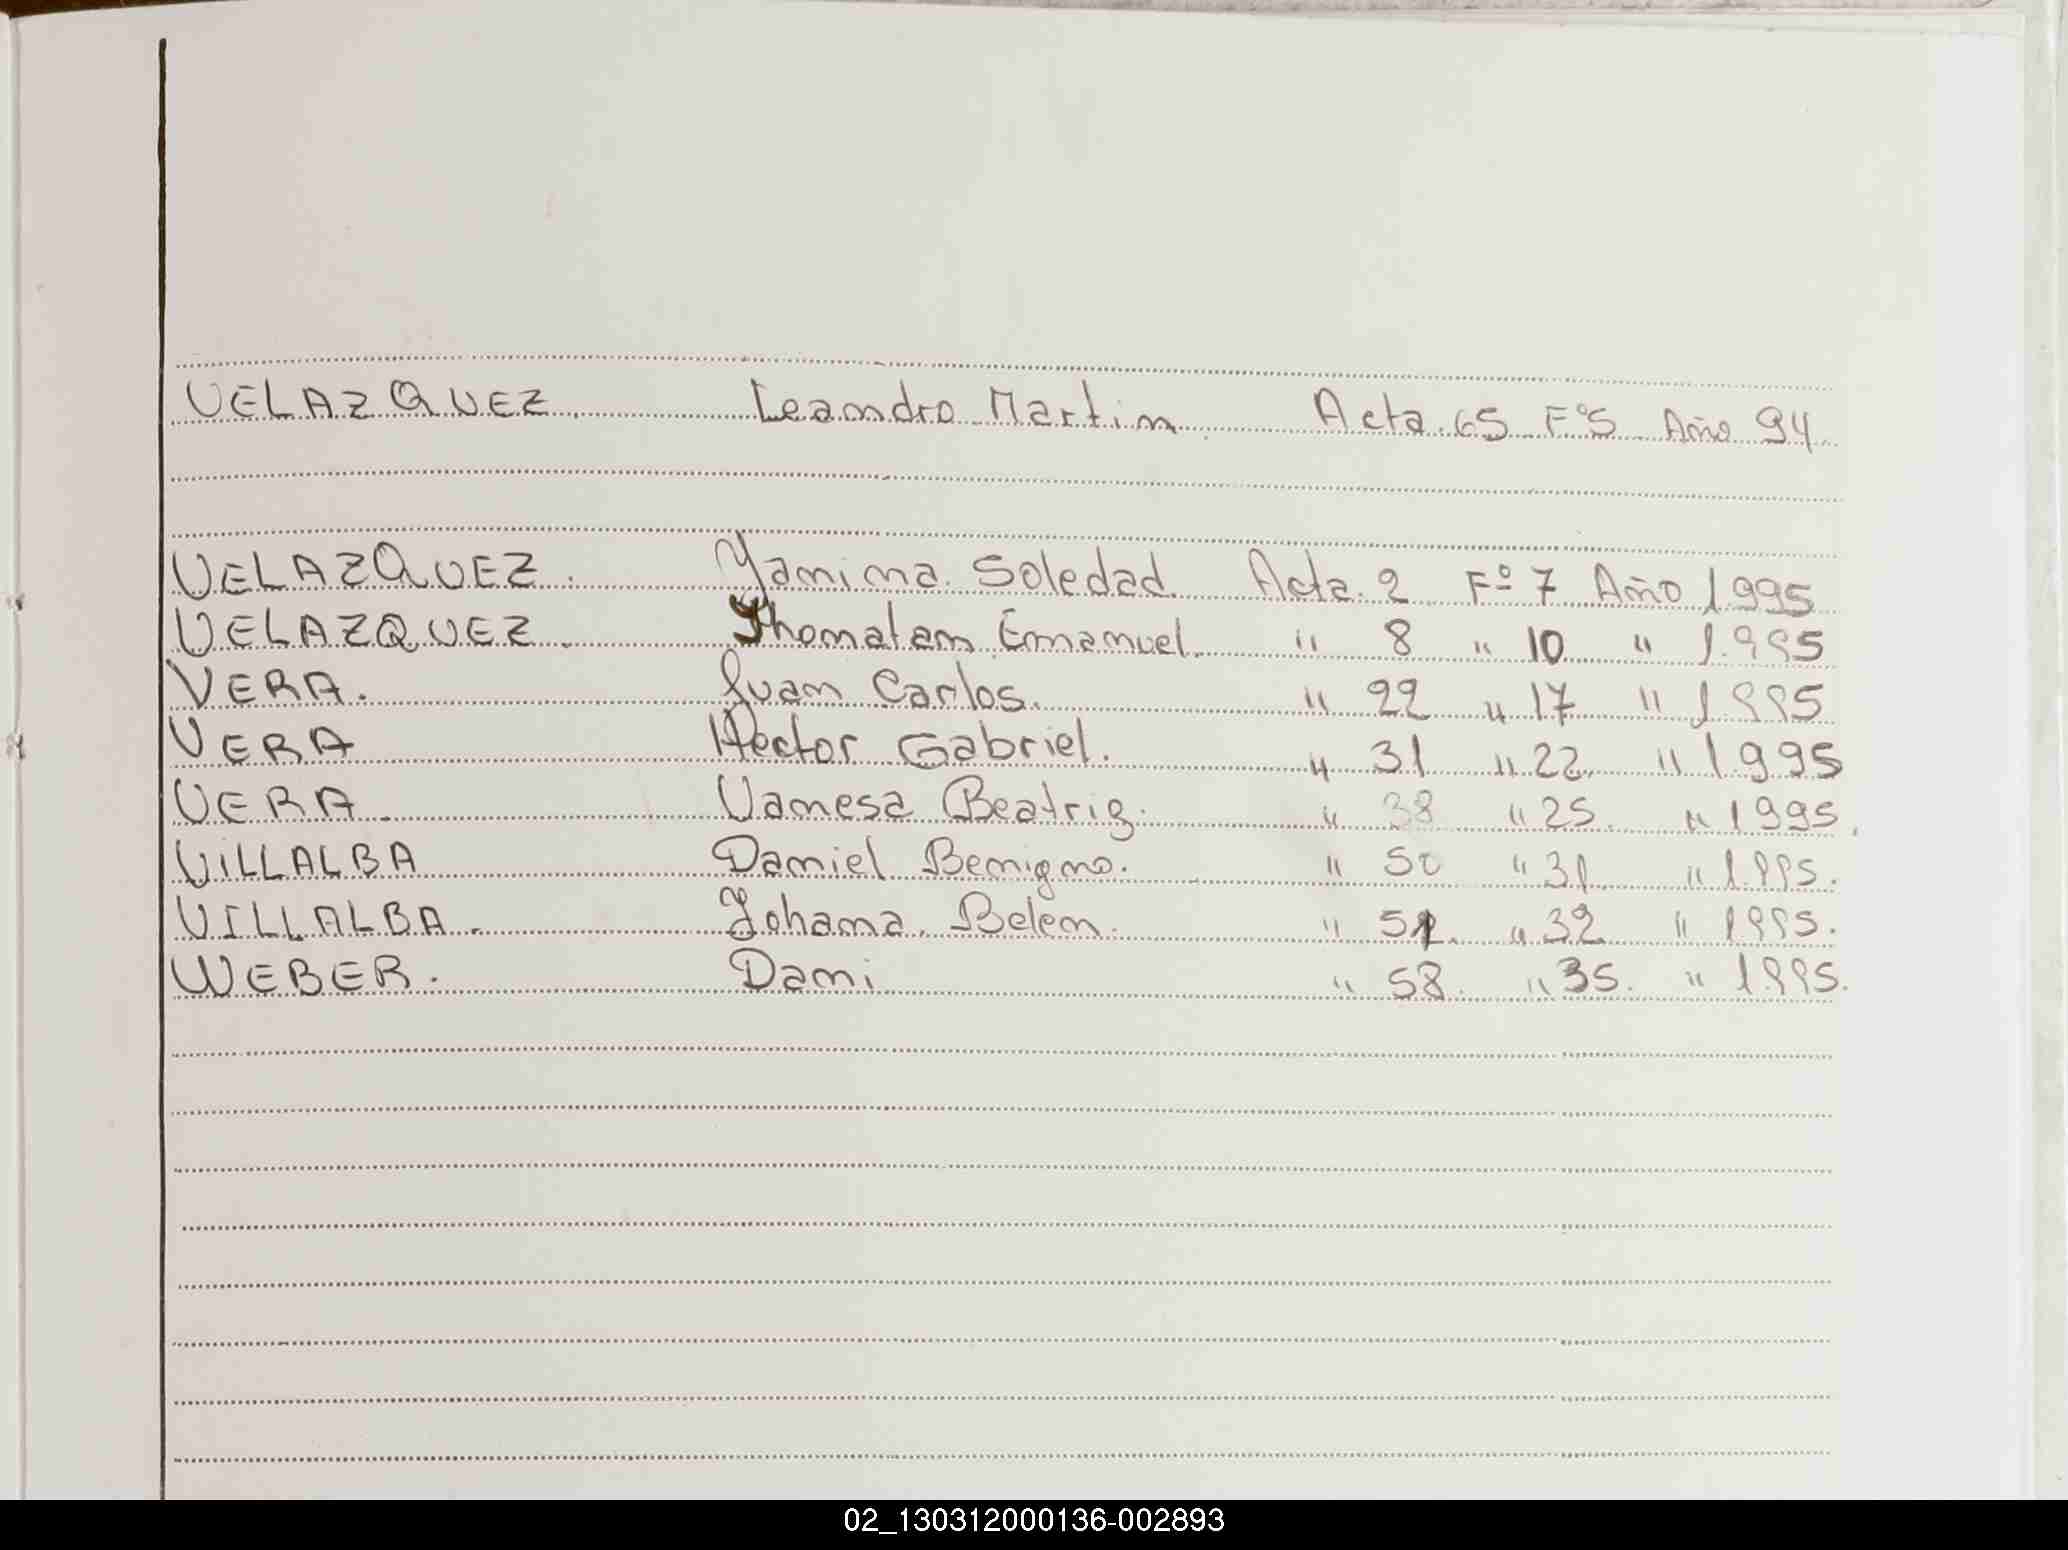 VELAZQUEZ. Leandro Martin. Acta 65 Fº5 Año 94
VELAZQUEZ. Yanina Soledad. Acta 2 Fº 7 Año 1995
VELAZQUEZ. Jhonatan Emanuel. " 8 " 10 " 1.995
VERA. Juan Carlos. " 22 " 17 " 1995
VERA Hector Gabriel. " 31 " 22. " 1995
VERA. Vanesa Beatriz. " 38 " 25. " 1995.
VILLALBA Daniel Benigno. " 50 " 31 " 1.995.
VILLALBA. Johana Belen. " " 32 " 1995.
WEBER. Dani " 58. " 35. " 1995.
02_130312000136-002893